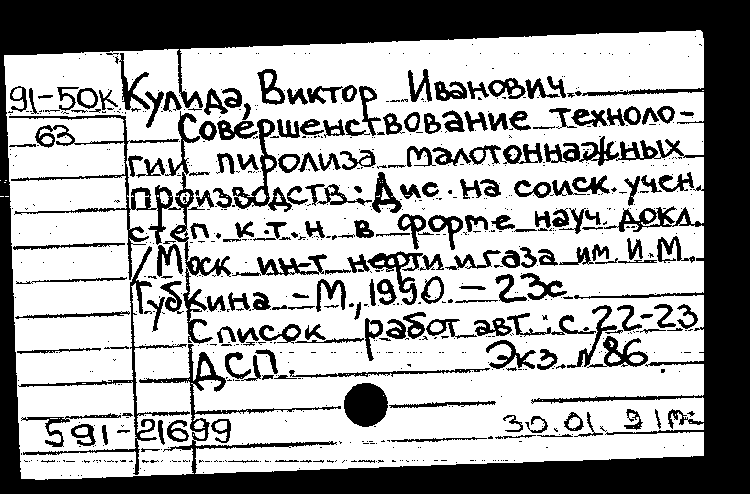 91-50к Кулида, Виктор Иванович.
63 Совершенствование техноло-
гии пиролиза малотоннажных
производств: Дис. на соиск. учен.
степ. к.т.н. в форме науч. докл.
/Моск ин-т нефти и газа им И.М.
Губкина - М., 1990. - 23с.
Список работ авт.: с.22-23
ДСП. Экз №86.
591-21699 30.01.91